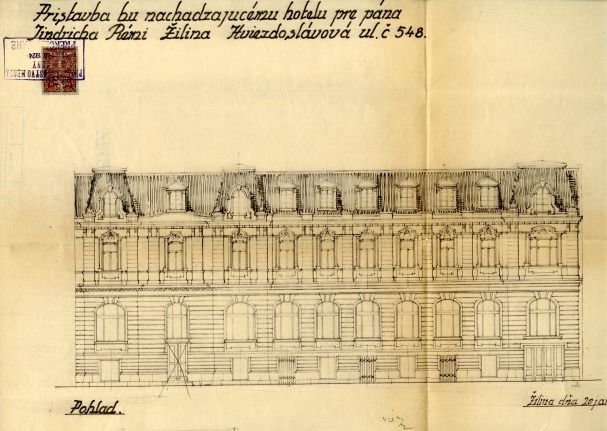 Prístavba ku nachadzajucému hotelu pre pána
Jindricha Rémi Žilina Hviezdoslávová ul. č 548.
Pohlad.
Žilina dňa 20.